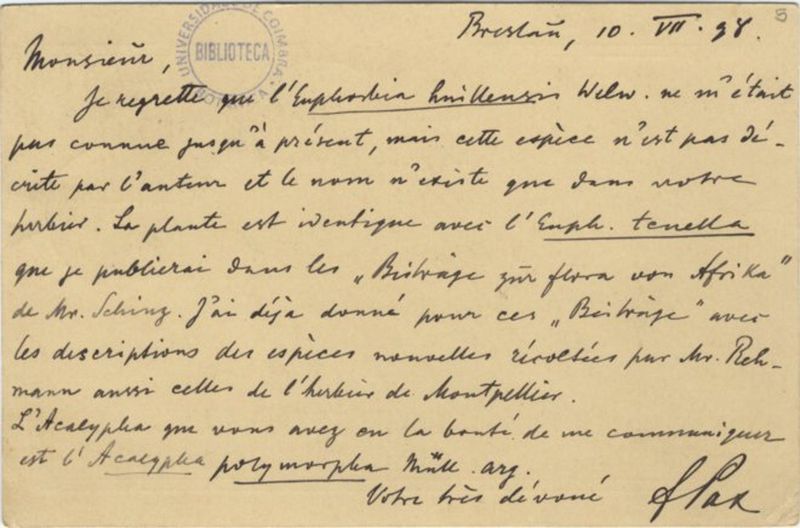 5
Breslau, 10. VII. 98.
UNIVERSIDADE DE COIMBRA
BIBLIOTECA
BOTANICA
Monsieur,
Je regrette que l'Euphorbia huillensis Welw. ne m'était
pas connue jusqu'à présent, mais cette espèce n'est pas dé-
crite par l'auteur et le nom n'existe que dans votre
herbier. La plante est identique avec l'Euph. tenella
que je publierai dans les „Beiträge zur flora von Afrika"
de Mr. Schinz. J'ai déja donné pour ces „Beiträge" avec
les descriptions des espèces nouvelles récoltées par Mr. Reh-
mann aussi celles de l'herbier de Montpellier.
L'Acalypha que vous avez eu la bonté de me communiquer
est l'Acalypha polymorpha Müll. arg.
Votre très dévoué F Pax